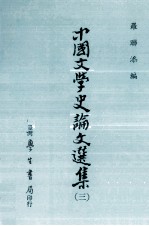 羅聯添編
中國文學史論文選集
(三)
臺灣學生書局印行